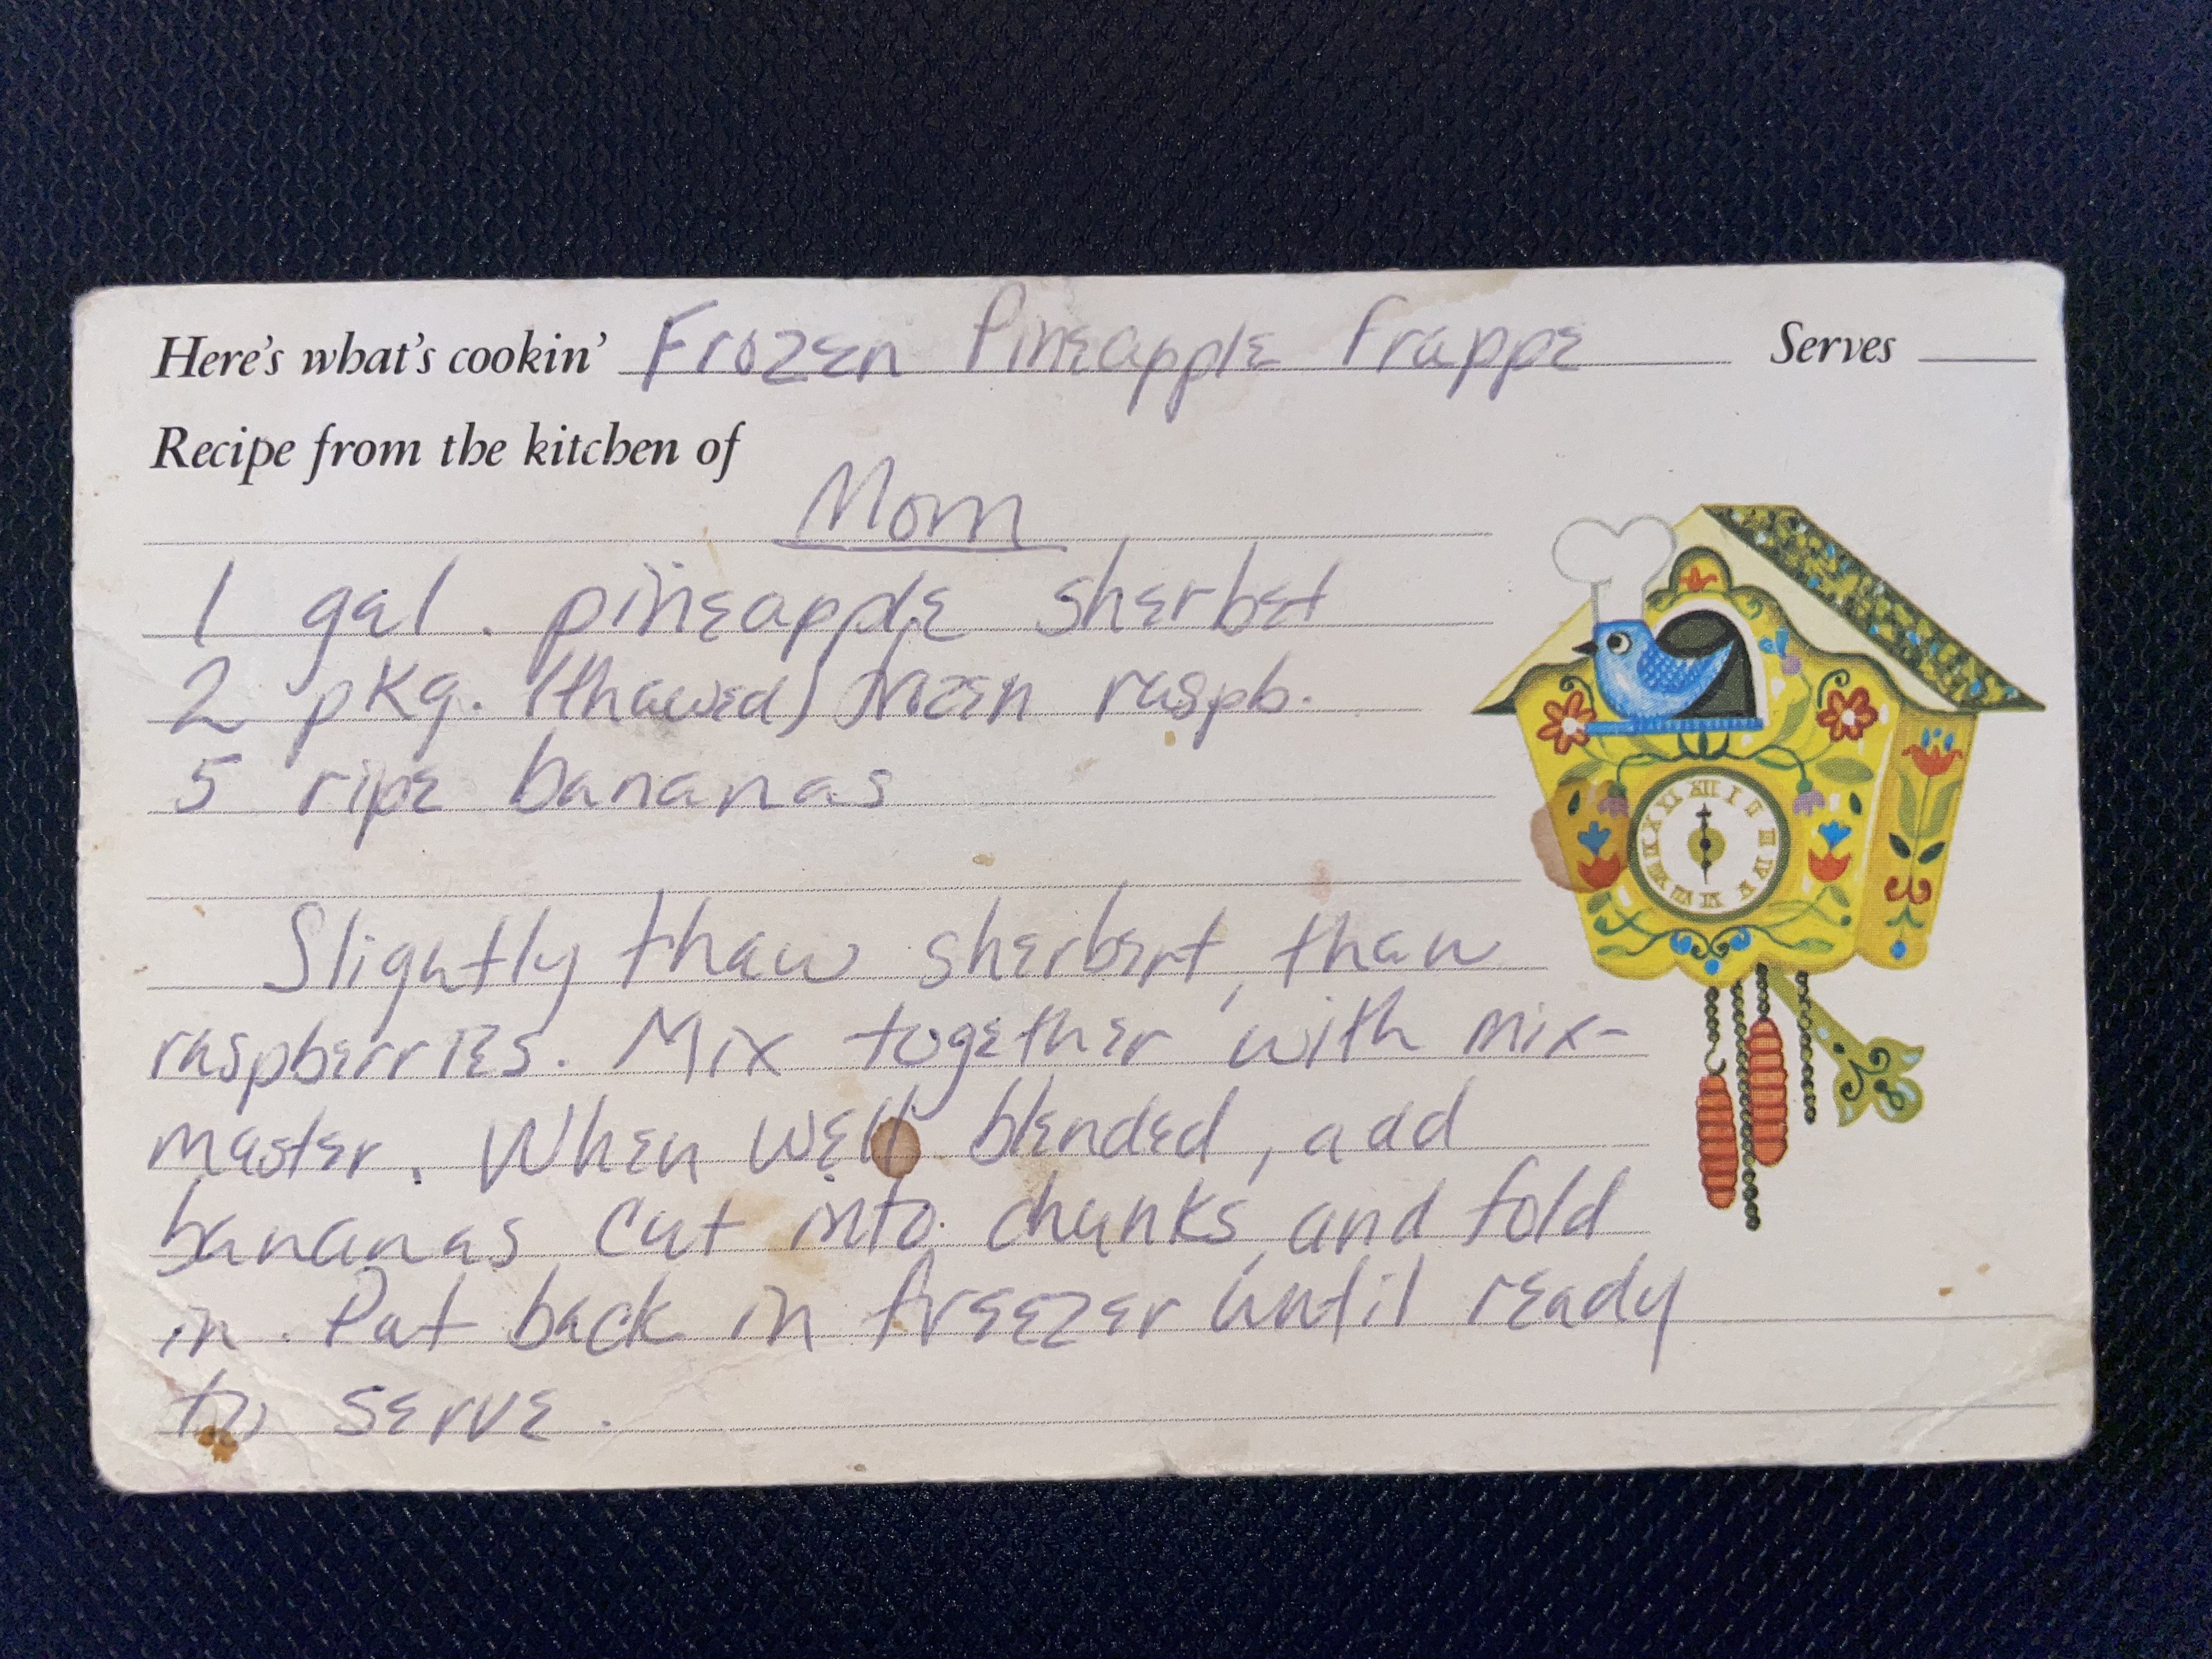 Here's what's cookin' Frozen Pineapple Frappe Serves
Recipe from the kitchen of
Mom
1 gal. pineapple sherbet
2 pkg. (thawed) frozen raspb.
5 ripe bananas
Slightly thaw sherbert, thaw
raspberries. Mix together with mix-
master. When well blended, add
bananas cut into chunks, and fold
in. Put back in freezer until ready
to serve.
XII I II III IV V VI VII VIII IX X XI